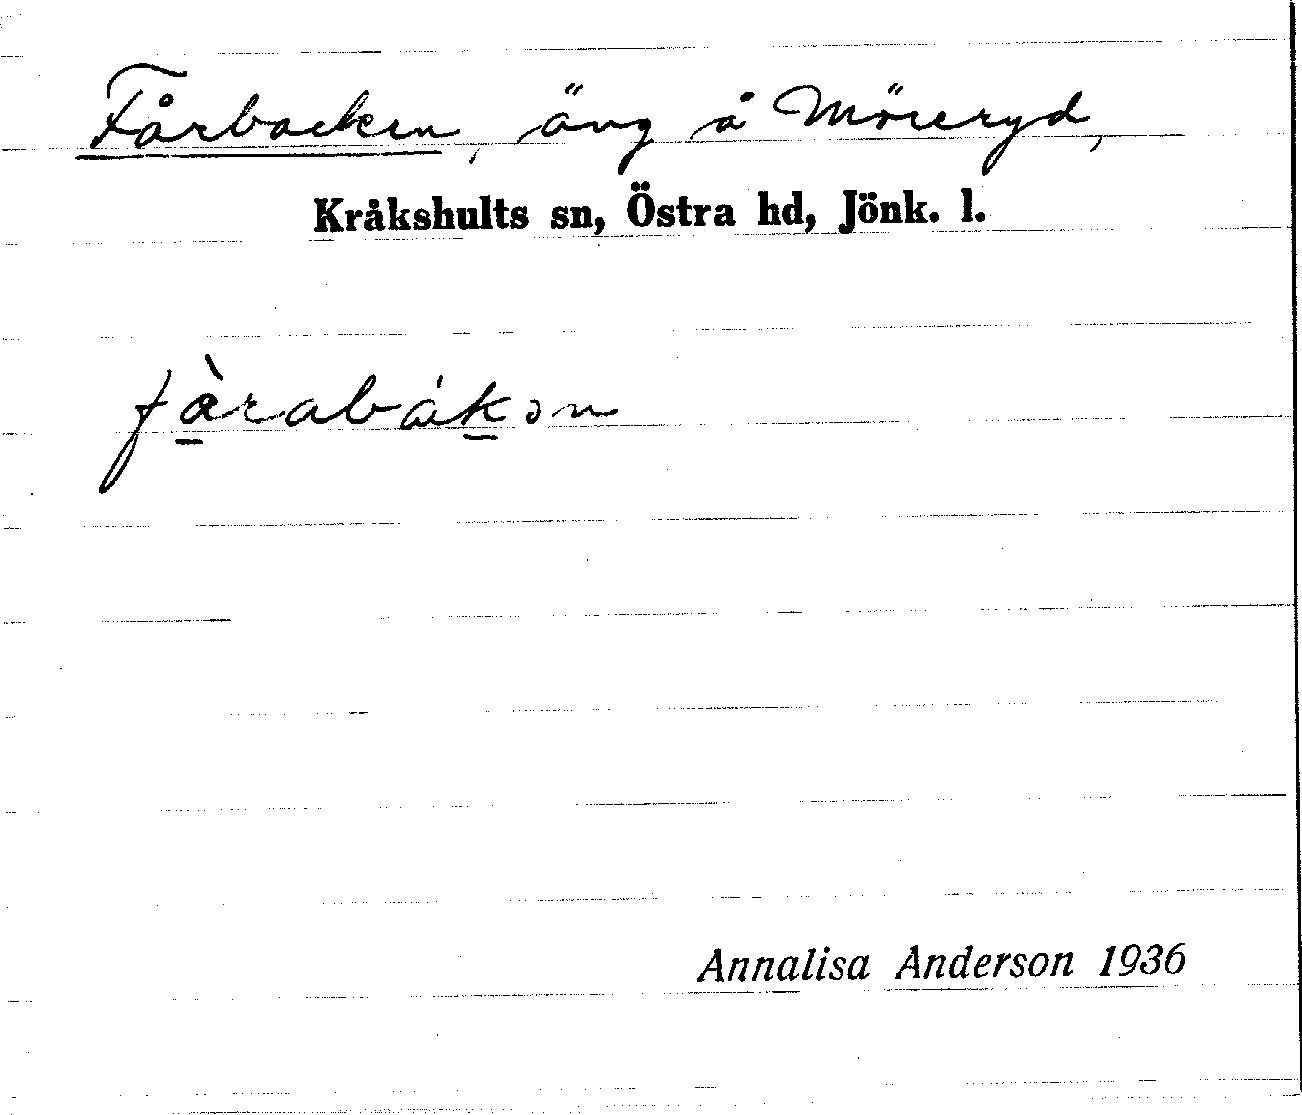 Fårbacken, äng å Möreryd,
Kråkshults sn, Östra hd, Jönk. l.
Annalisa Anderson 1936